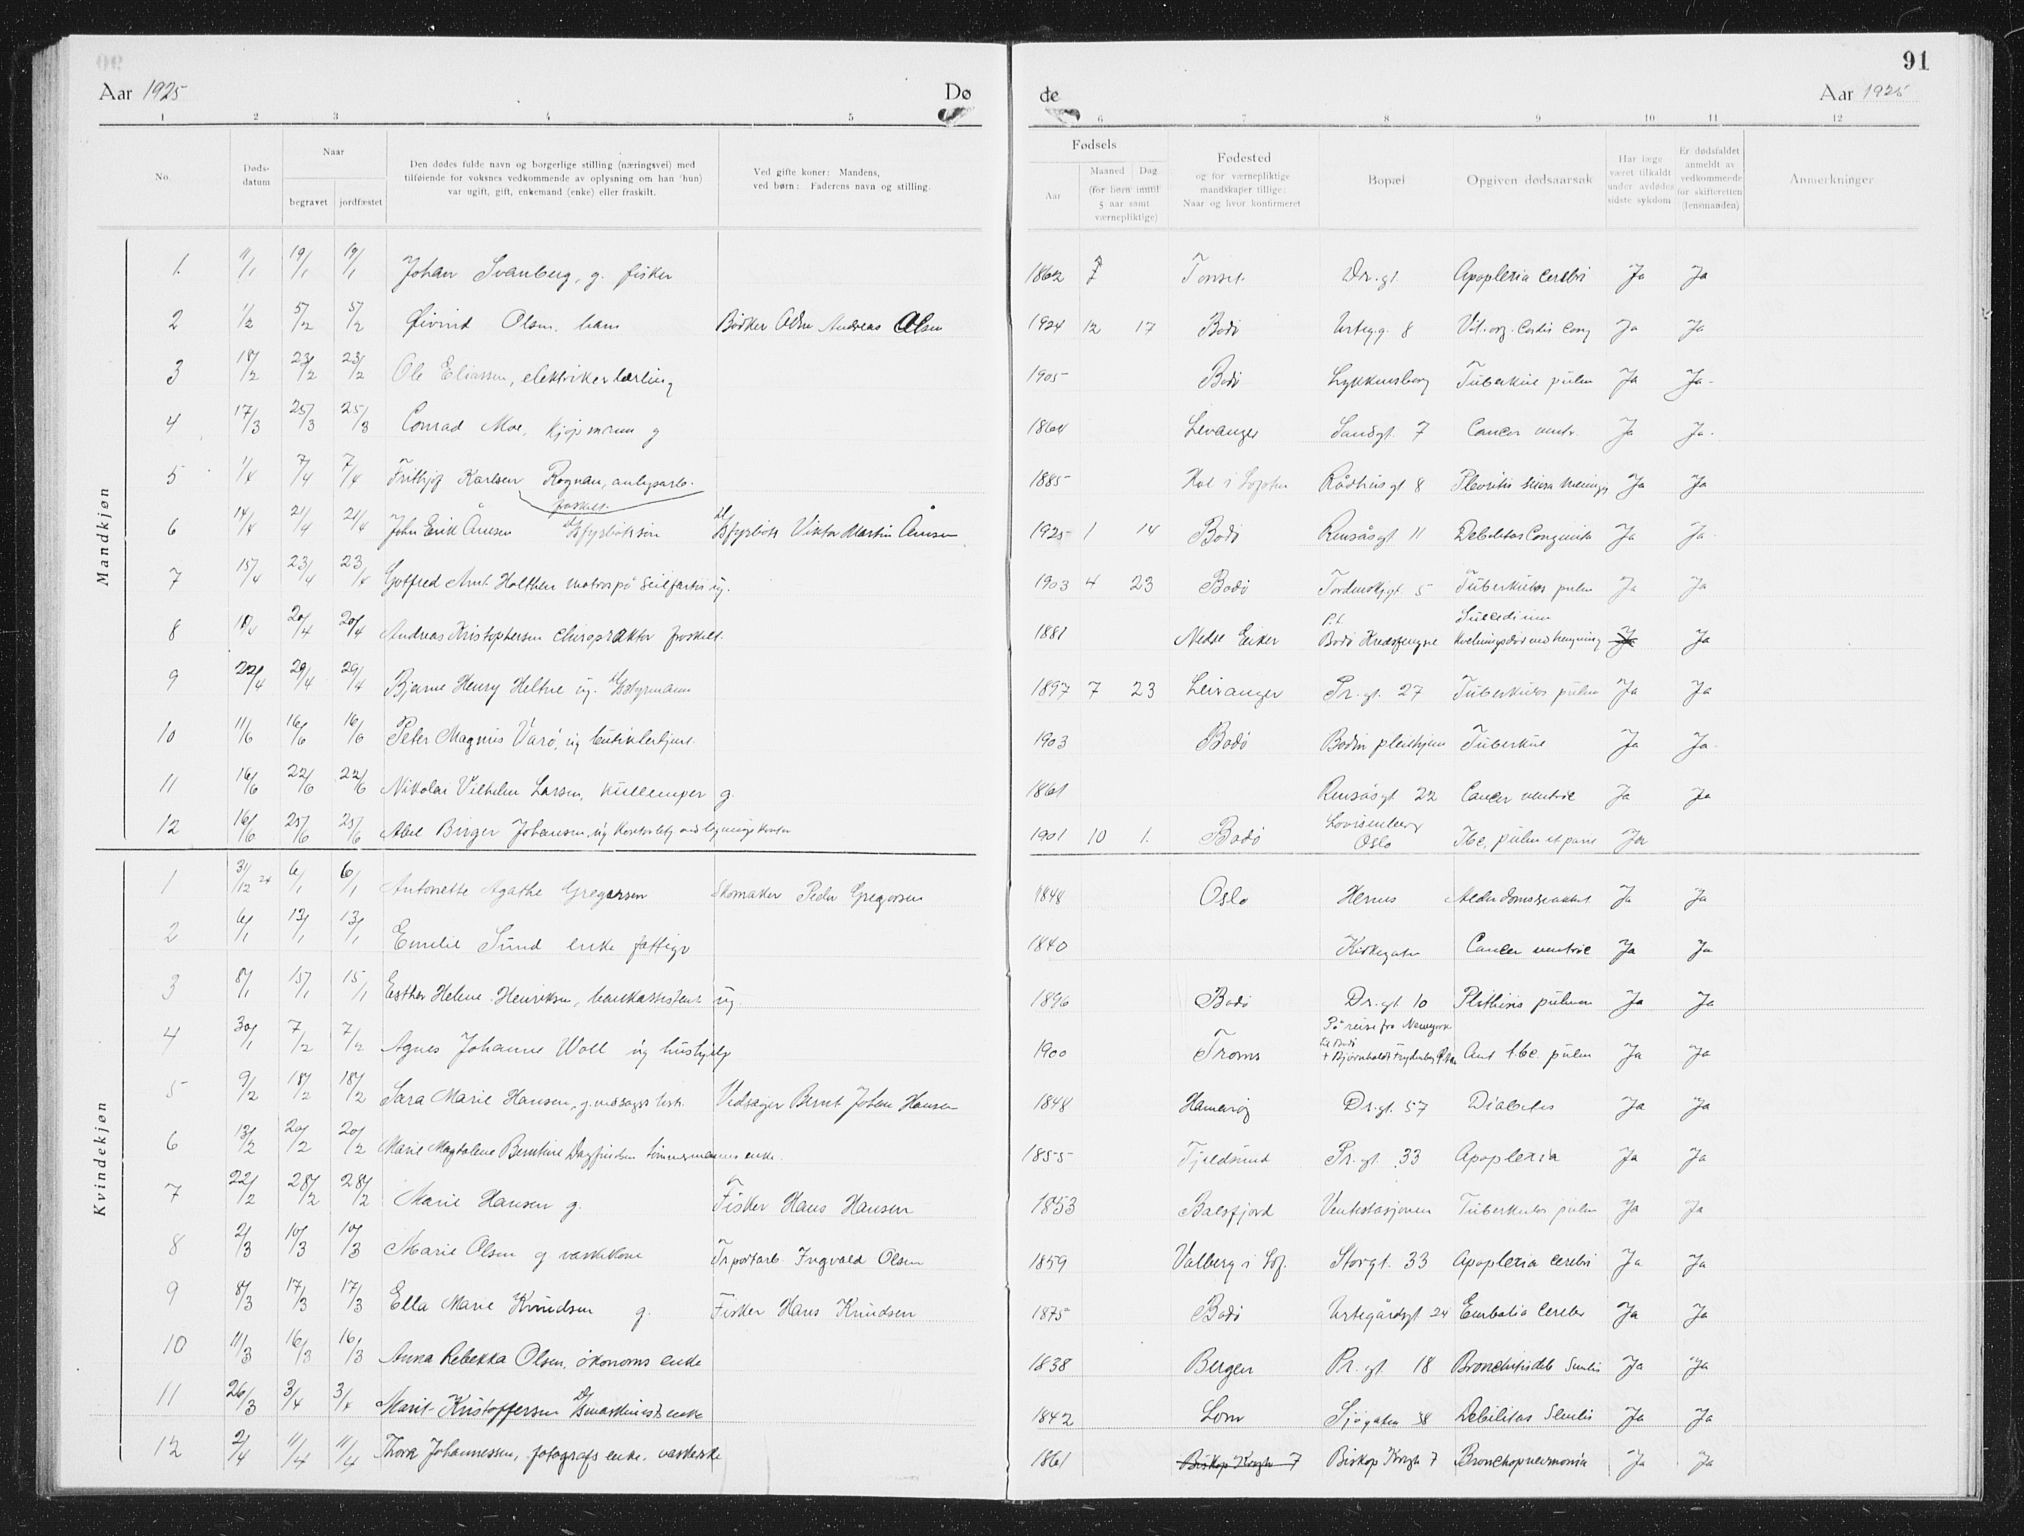 91
Aar 1925 Dø de Aar 1925
1 2 3 4 5 6 7 8 9 10 11 12
No.
Døds-
datum
Naar
begravet jordfæstet
Den dødes fulde navn og borgerlige stilling (næringsvei) med
tilføiende for voksnes vedkommende av oplysning om han (hun)
var ugift, gift, enkemand (enke) eller fraskilt.
Ved gifte koner: Mandens,
ved børn: Faderens navn og stilling.
Fødsels
Aar
Maaned Dag
(for børn indtil
5 aar samt
værnepliktige)
Fødested
og for værnepliktige
mandskaper tillige:
Naar og hvor konfirmeret
Bopæl
Opgiven dødsaarsak
Har læge
været tilkaldt
under avdødes
sidste sykdom
Er dødsfaldet
anmeldt av
vedkommende
for skifteretten
(lensmanden)
Anmerkninger
Mandkjøn
1. 11/1 19/1 19/1 Johan Svanberg, g. fisker 1862 Dr. gt. Apoplexia cerebri Ja Ja
2 1/2 5/2 5/2 Øivind Olsen, barn Bødker Andreas Olsen 1924 12 17 Bodø Urtegg. 8 Ja Ja
3 18/2 23/2 23/2 Ole Eliassen, elektrikerlærling 1905 Bodø Lykkensborg Tuberkul pulm Ja Ja
4 17/3 25/3 25/3 Conrad Moe, kjøpmann g 1864 Levanger Sandgt. 7 Cancer ventr. Ja Ja.
5 1/4 7/4 7/4 Frithjof Karlsen Rognan, anlegsarb. fraskilt. 1885 Hol i Lofoten Rådhusgt 8 Ja Ja
6 14/4 21/4 21/4 John Erik Ånesen D/S fyrbøters søn D/S fyrbøt. Viktor Martin Ånesen 1925 1 14 Bodø Rensåsgt 11 Debilitas Congenita Ja Ja
7 15/4 23/4 23/4 Gotfred Arnt Holthen matros på seilfartøi ug. 1903 4 23 Bodø Tordenskj.gt. 5 Tuberkulos pulm Ja Ja
8 20/4 20/4 Andreas Kristophersen chiropraktor fraskilt. 1881 Nedre Eiker p.t. Bodø Kredsfengsel Suicedium Kvelningsdød ved hengning Ja Ja
9 22/4 29/4 29/4 Bjarne Henry Heltne ug. D/S styrmann 1897 7 23 Leiranger Pr. gt. 27 Tuberkulos pulm Ja Ja
10 11/6 16/6 16/6 Peter Magnus Varö, ug butikkbetjent. 1903 Bodø Bodin pleiehjem Tuberkul Ja Ja.
11 16/6 22/6 22/6 Nikolai Vilhelm Larsen, kullemper g. 1861 Rensåsgt 22 Cancer ventric Ja Ja
12 16/6 25/6 25/6 Birger Johansen, ug kontorist ved ligningskontor 1901 10 1. Bodø Lovisenberg Oslo Tbc. pulm Ja
Kvindekjøn
1 31/12 24 6/1 6/1 Antonette Agathe Gregersen Skomaker Peder Gregersen 1848 Oslo Hernes Alderdomssvakhet Ja Ja
2 6/1 13/1 13/1 Emilie Sund enke fattigv 1840 Kirkegaten Cancer ventric Ja Ja
3 8/1 15/1 15/1 Esther Helene Henriksen, bankassistent ug. 1896 Bodø Dr. gt. 10 Phthisis pulmon Ja Ja
4 30/1 7/2 7/2 Agnes Johanne Woll ug hushjelp 1900 Troms På reise fra Newyork til Bodø Aut tbc. pulm Ja Ja
5 9/2 18/2 18/2 Sara Marie Hansen, g. Vedsager Bernt Johan Hansen 1848 Hamarøy Dr. gt. 57 Diabetes Ja Ja
6 13/2 20/2 20/2 Marie Magdalene Berntine Dagfindsen tømmermanns enke. 1855 Tjeldsund Pr. gt. 33 Apoplexia Ja Ja
7 22/2 28/2 28/2 Marie Hansen g. Fisker Hans Hansen 1853 Balsfjord Ventestasjonen Tuberkulos pulm Ja Ja
8 2/3 10/3 10/3 Marie Olsen g vaskekone Tr.portarb. Ingvald Olsen 1859 Valberg i Lof. Storgt. 33 Apoplexia cerebri Ja Ja
9 8/3 17/3 17/3 Ella Marie Knudsen g. Fisker Hans Knudsen 1875 Bodø Urtegårdsgt 24 Embolia cerebr Ja Ja
10 11/3 16/3 16/3 Anna Rebekka Olsen, økonoms enke 1838 Bergen Pr. gt 18 Ja Ja
11 26/3 3/4 3/4 Marit Kristoffersen D/S maskinists enke 1842 Lom Sjøgaten 38 Debilitas Senilis Ja Ja
12 2/4 11/4 11/4 Thora Johannessen, fotografs enke. vaskerske 1861 Biskop Krogh 7 Biskop Krogh 7 Bronchopneumonia Ja Ja